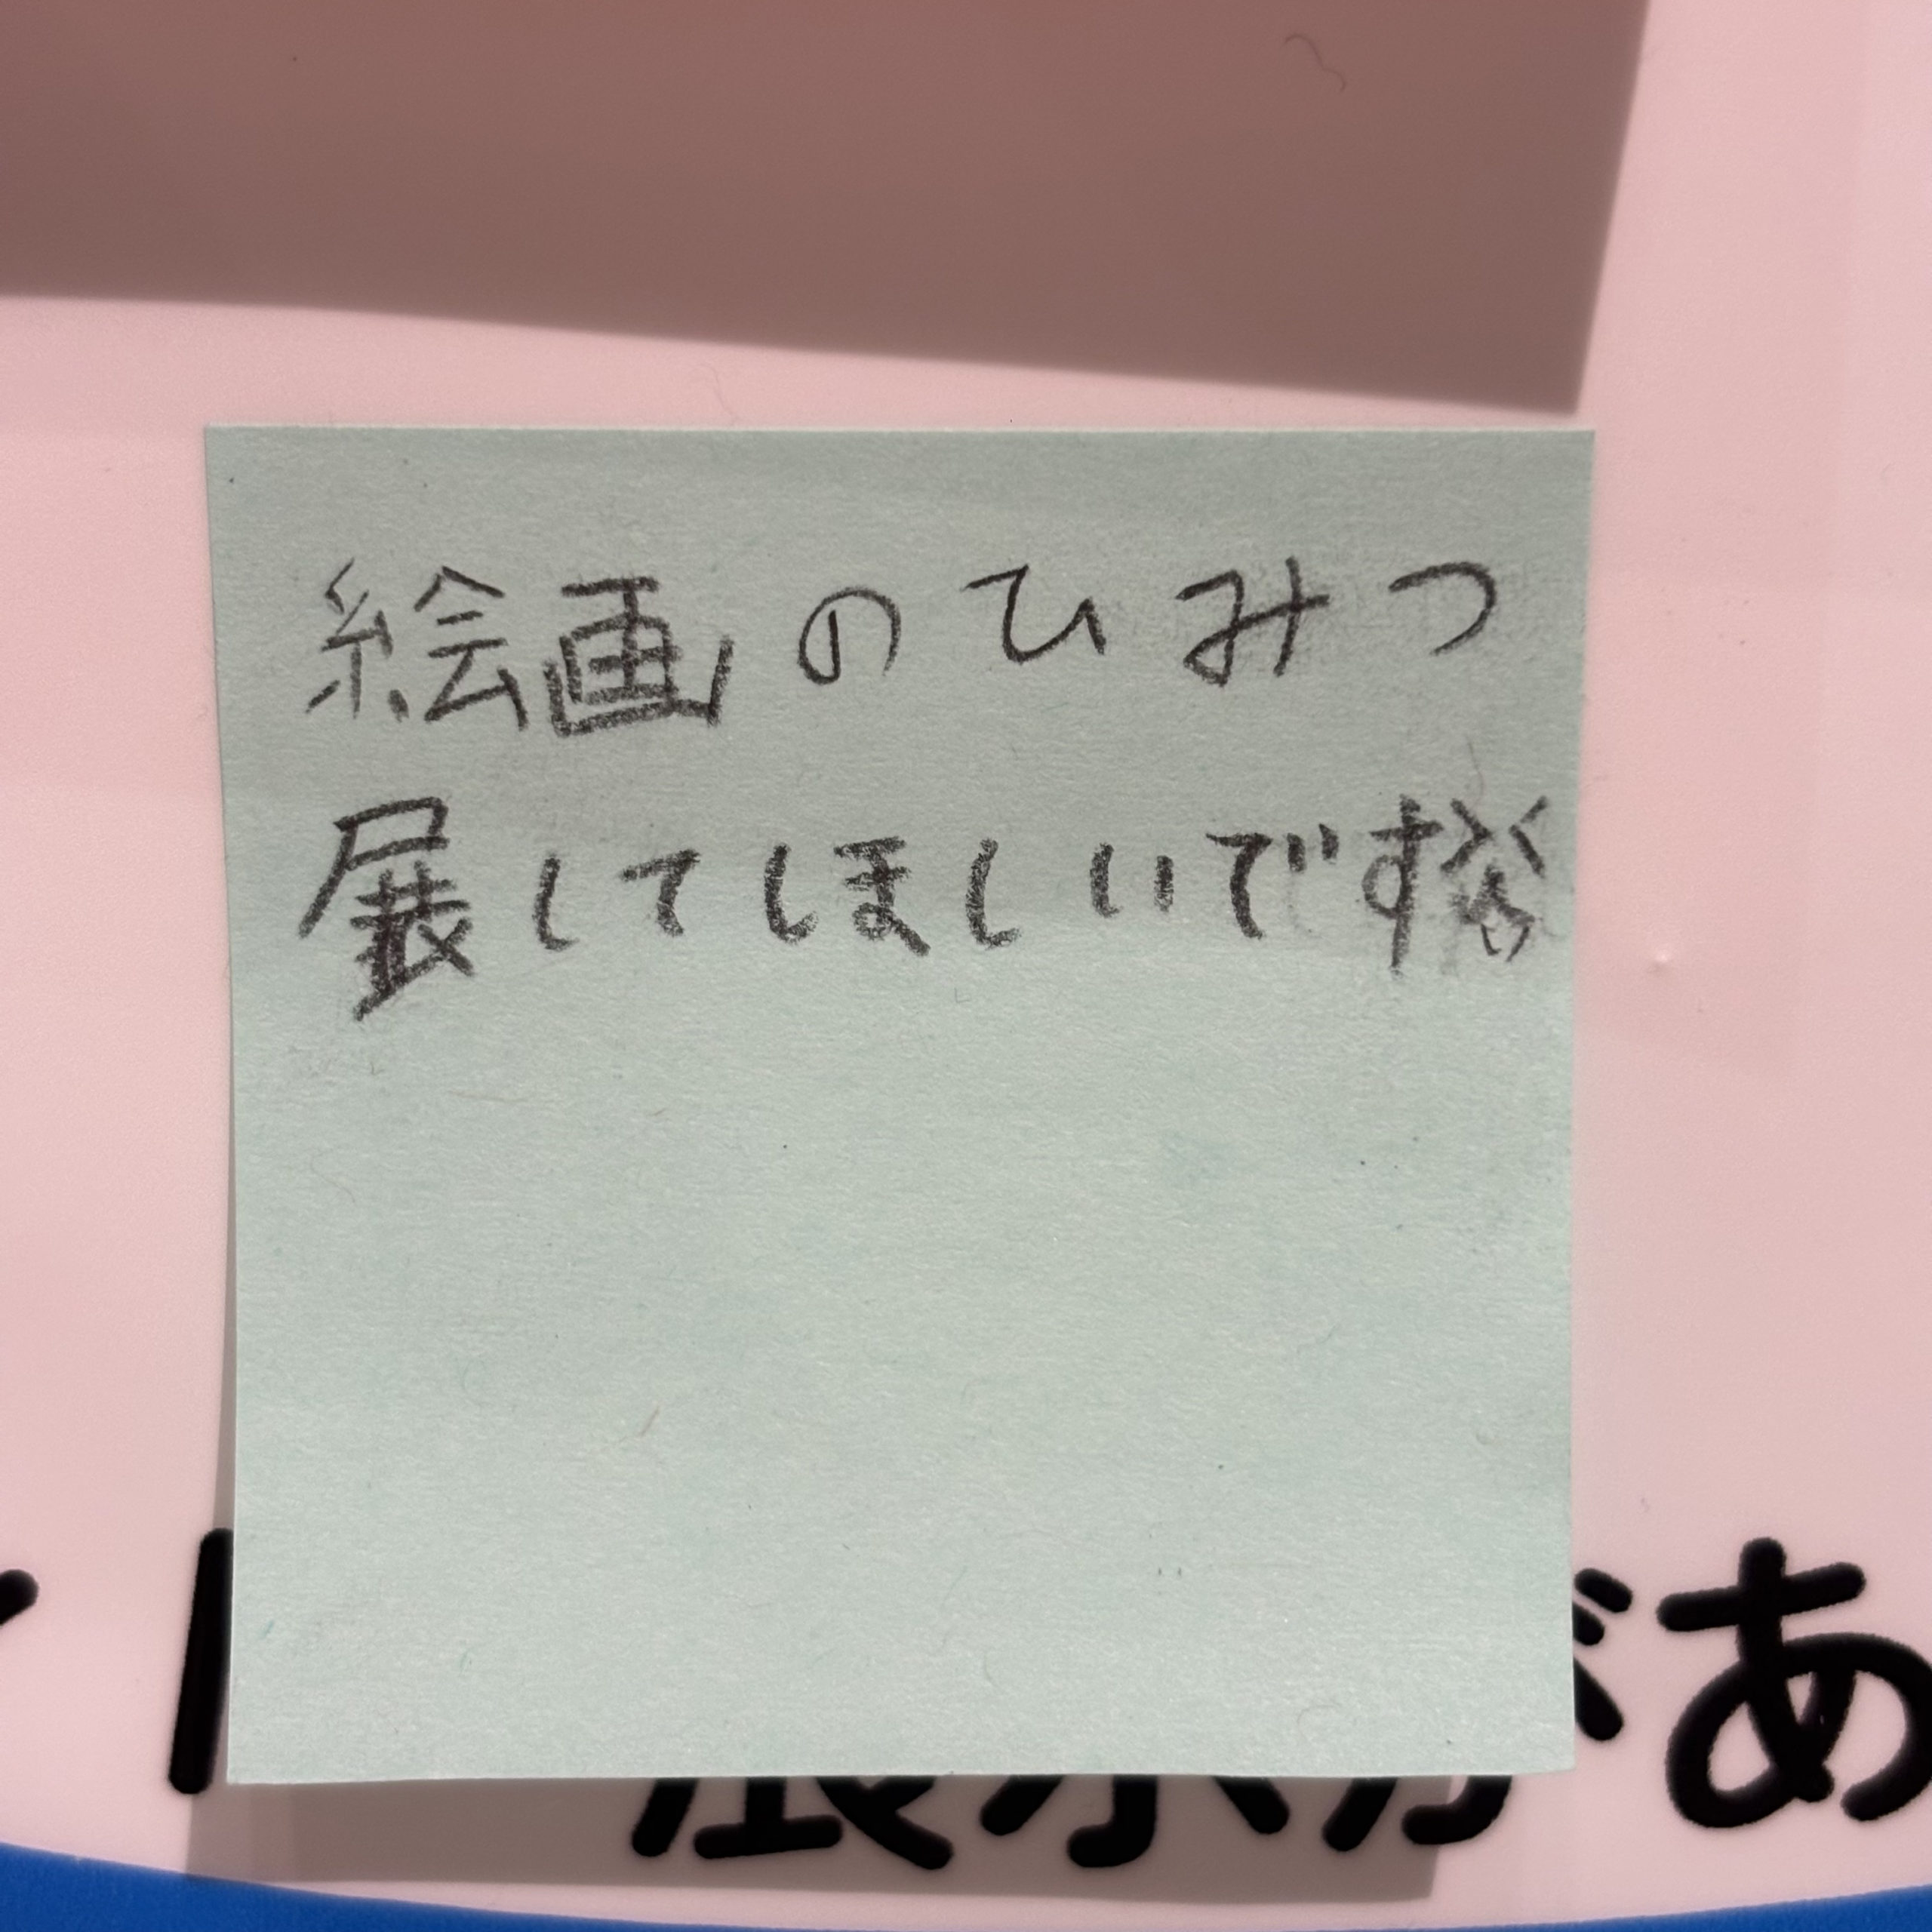 絵画のひみつ
展してほしいです
展示があ